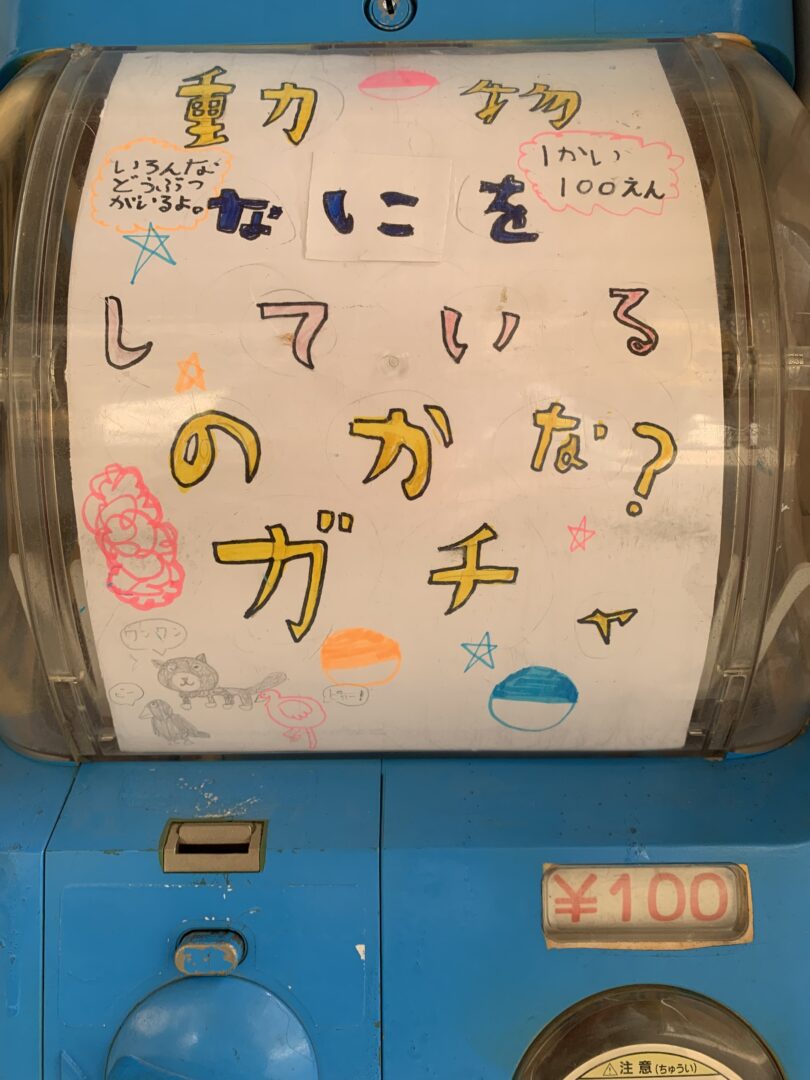 動力 物
いろんな
どうぶつ
がいるよ。
1かい
100えん
なにを
している
のかな?
ガチャ
ワンワン
ピー
¥100
⚠注意(ちゅうい)